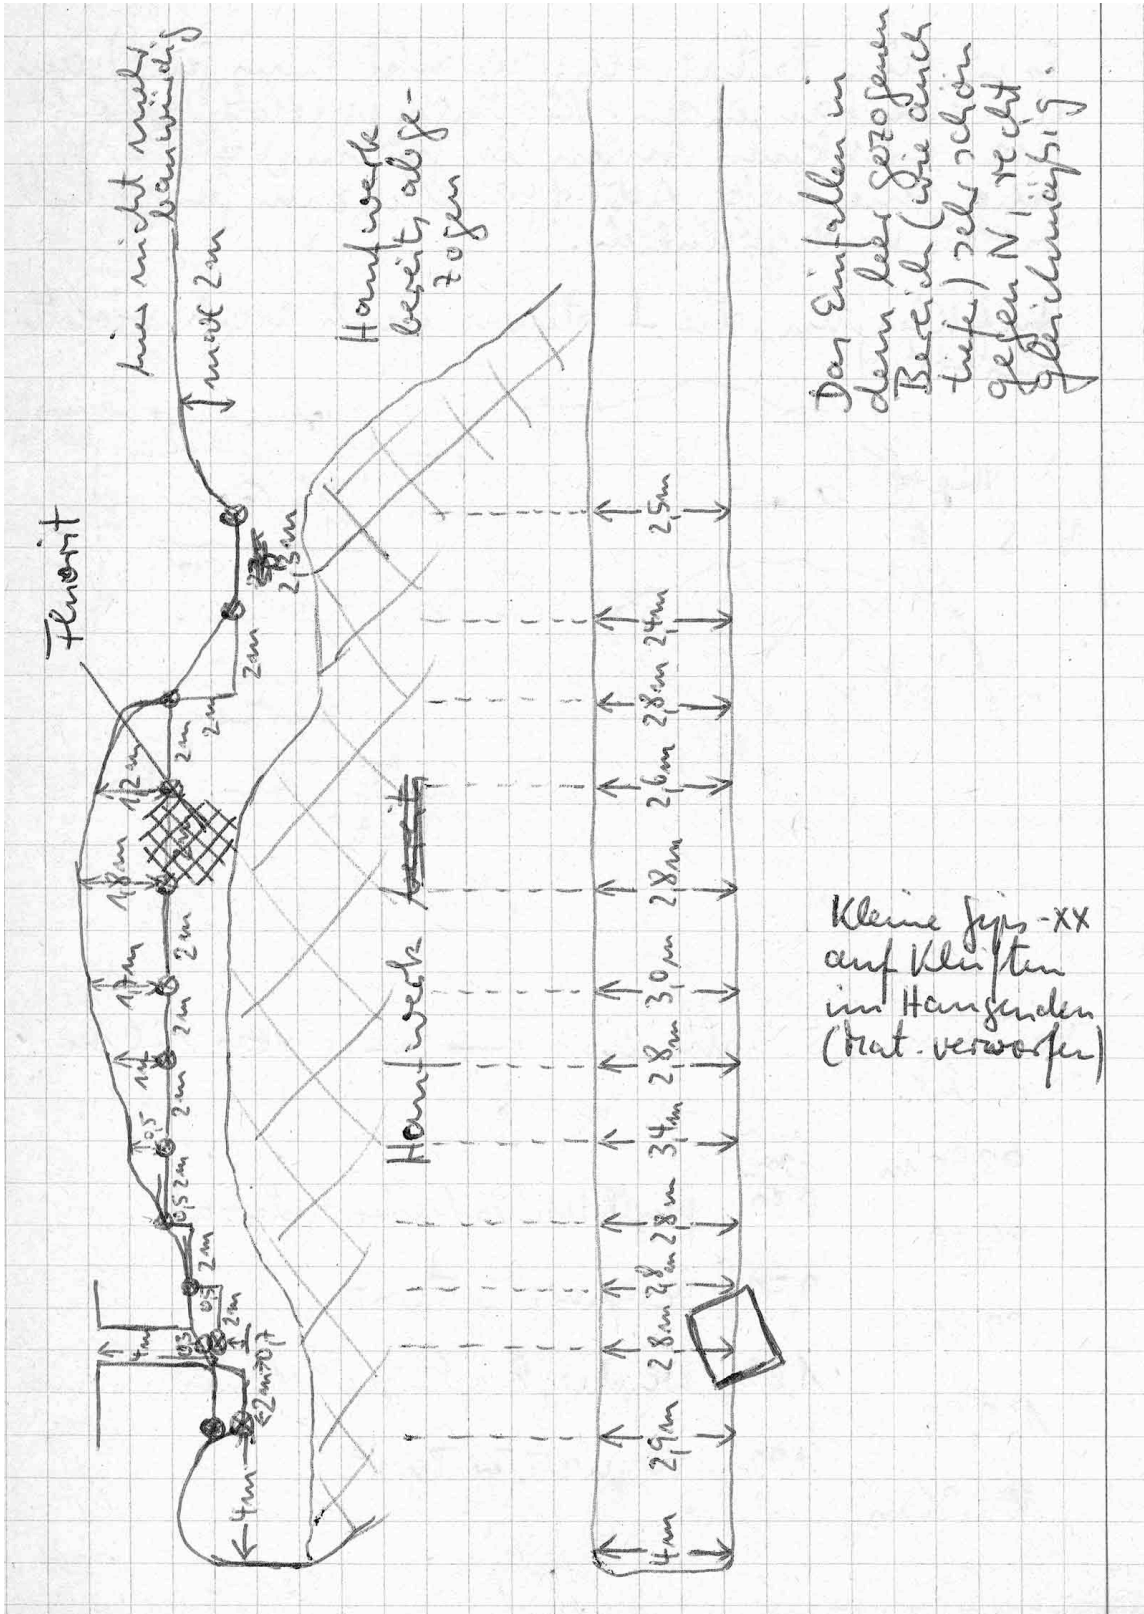 hier nicht mehr
bauwürdig
max 2m
Fluorit
Haufwerk
bereits abge-
zogen
4m
0,3
2m
0,7
4m
2m
0,5
2m
0,5
2m
0,5
2m
2m
1,7m
2m
1,8m
1,2m
2m
2m
2m
2,3m
Haufwerk
4m
2,9m
2,8m
2,8m
2,8m
3,4m
2,8m
3,0m
2,8m
2,6m
2,8m
2,4m
2,5m
Das Einfallen in
dem leer gezogenen
Bereich (wie auch
tiefer) sehr schön
gegen N, recht
gleichmäßig.
Kleine Gips-XX
auf Klüften
im Hangenden
(Mat. verworfen)